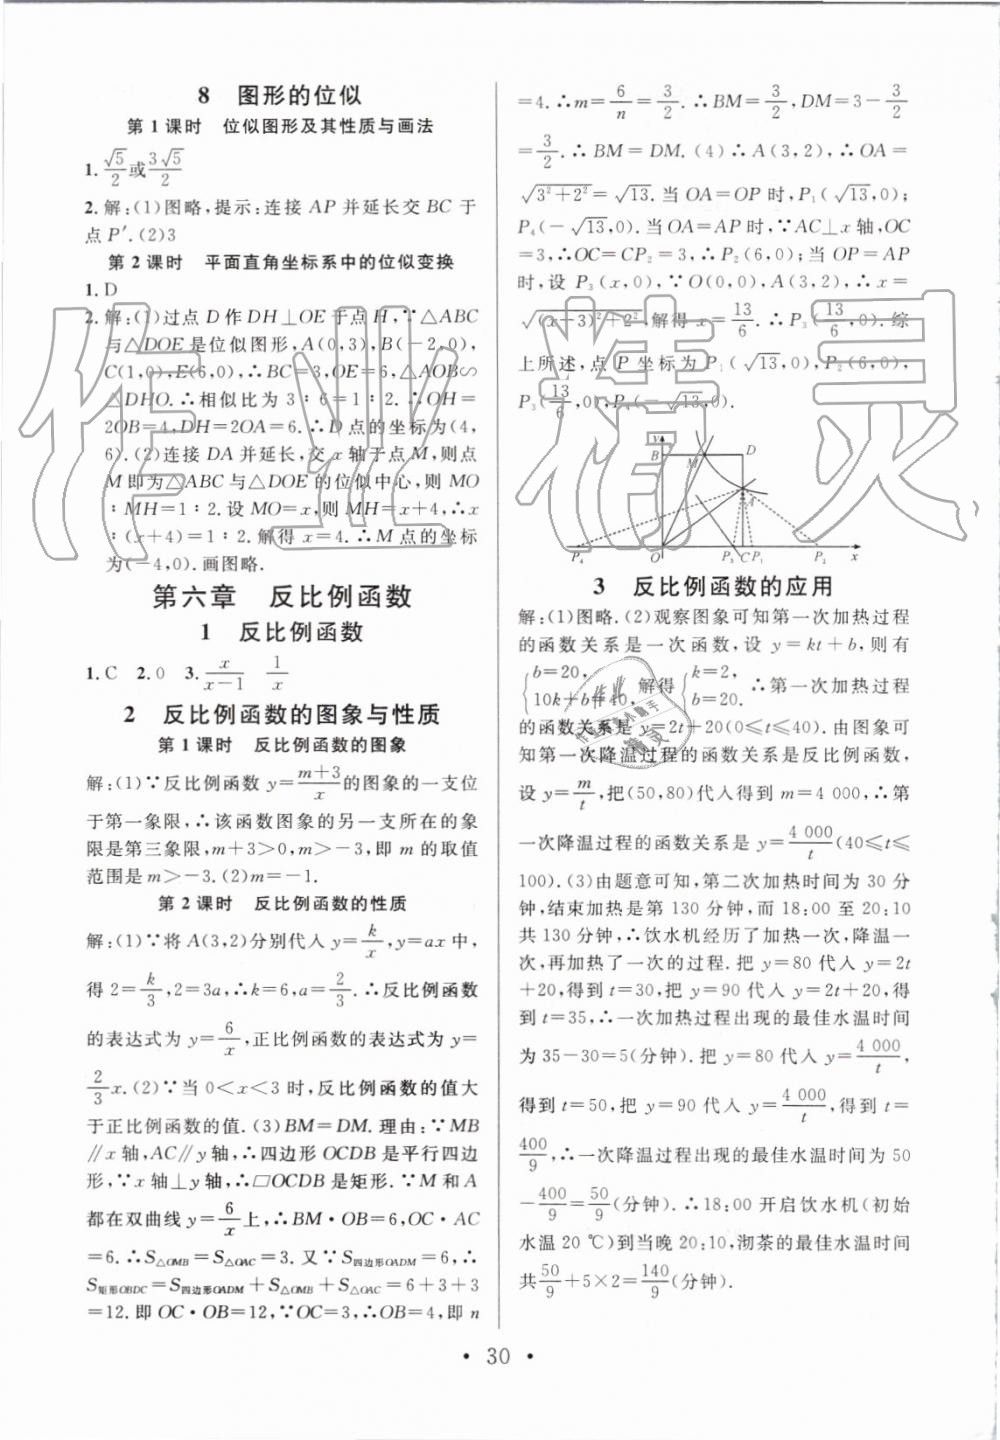 8 图形的位似
第1课时 位似图形及其性质与画法
1. √5/2 或 3√5/2
2. 解:(1)图略,提示:连接 AP 并延长交 BC 于
点 P′.(2)3
第2课时 平面直角坐标系中的位似变换
1. D
2. 解:(1)过点 D 作 DH⊥OE 于点 H,∵△ABC
与△DOE 是位似图形,A(0,3),B(-2,0),
C(1,0),E(6,0),∴BC=3,OE=6,△ABO∽
△DHO.∴相似比为 3∶6=1∶2.∴OH=
2OB=4,DH=2OA=6.∴D 点的坐标为(4,
6).(2)连接 DA 并延长,交 x 轴于点 M,则点
M 即为△ABC 与△DOE 的位似中心,则 MO
∶MH=1∶2.设 MO=x,则 MH=x+4,∴x
∶(x+4)=1∶2.解得 x=4.∴M 点的坐标
为(-4,0).画图略.
第六章 反比例函数
1 反比例函数
1. C 2. 0 3. x/(x-1) 1/x
2 反比例函数的图象与性质
第1课时 反比例函数的图象
解:(1)∵反比例函数 y=(m+3)/x 的图象的一支位
于第一象限,∴该函数图象的另一支所在的象
限是第三象限,m+3>0,m>-3,即 m 的取值
范围是 m>-3.(2)m=-1.
第2课时 反比例函数的性质
解:(1)∵将 A(3,2)分别代入 y=k/x,y=ax 中,
得 2=k/3,2=3a,∴k=6,a=2/3.∴反比例函数
的表达式为 y=6/x,正比例函数的表达式为 y=
2/3 x.(2)∵当 0<x<3 时,反比例函数的值大
于正比例函数的值.(3)BM=DM.理由:∵MB
∥x 轴,AC∥y 轴,∴四边形 OCDB 是平行四边
形,∵x 轴⊥y 轴,∴□OCDB 是矩形.∵M 和 A
都在双曲线 y=6/x 上,∴BM·OB=6,OC·AC
=6.∴S△OMB=S△OAC=3.又∵S四边形OADM=6,∴
S矩形OBDC=S四边形OADM+S△OMB+S△OAC=6+3+3
=12.即 OC·OB=12,∵OC=3,∴OB=4,即 n
=4.∴m=6/n=3/2.∴BM=3/2,DM=3-3/2
=3/2.∴BM=DM.(4)∴A(3,2),∴OA=
√(3²+2²)=√13.当 OA=OP 时,P₁(√13,0);
P₄(-√13,0).当 OA=AP 时,∵AC⊥x 轴,OC
=3,∴OC=CP₂=3.∴P₂(6,0);当 OP=AP
时,设 P₃(x,0),∵O(0,0),A(3,2),∴x=
√((x-3)²+2²),解得 x=13/6.∴P₃(13/6,0).综
上所述,点 P 坐标为 P₁(√13,0),P₂(6,0),
P₃(13/6,0),P₄(-√13,0).
y
B M D
A
P₄ O P₃ C P₁ P₂ x
3 反比例函数的应用
解:(1)图略.(2)观察图象可知第一次加热过程
的函数关系是一次函数,设 y=kt+b,则有
{b=20, 10k+b=40, 解得{k=2, b=20. ∴第一次加热过程
的函数关系是 y=2t+20(0≤t≤40).由图象可
知第一次降温过程的函数关系是反比例函数,
设 y=m/t,把(50,80)代入得到 m=4 000,∴第
一次降温过程的函数关系是 y=4 000/t(40≤t≤
100).(3)由题意可知,第二次加热时间为 30 分
钟,结束加热是第 130 分钟,而 18:00 至 20:10
共 130 分钟,∴饮水机经历了加热一次,降温一
次,再加热了一次的过程.把 y=80 代入 y=2t
+20,得到 t=30,把 y=90 代入 y=2t+20,得
到 t=35,∴一次加热过程出现的最佳水温时间
为 35-30=5(分钟).把 y=80 代入 y=4 000/t,
得到 t=50,把 y=90 代入 y=4 000/t,得到 t=
400/9,∴一次降温过程出现的最佳水温时间为 50
-400/9=50/9(分钟).∴18:00 开启饮水机(初始
水温 20 ℃)到当晚 20:10,沏茶的最佳水温时间
共 50/9+5×2=140/9(分钟).
· 30 ·
作业精灵